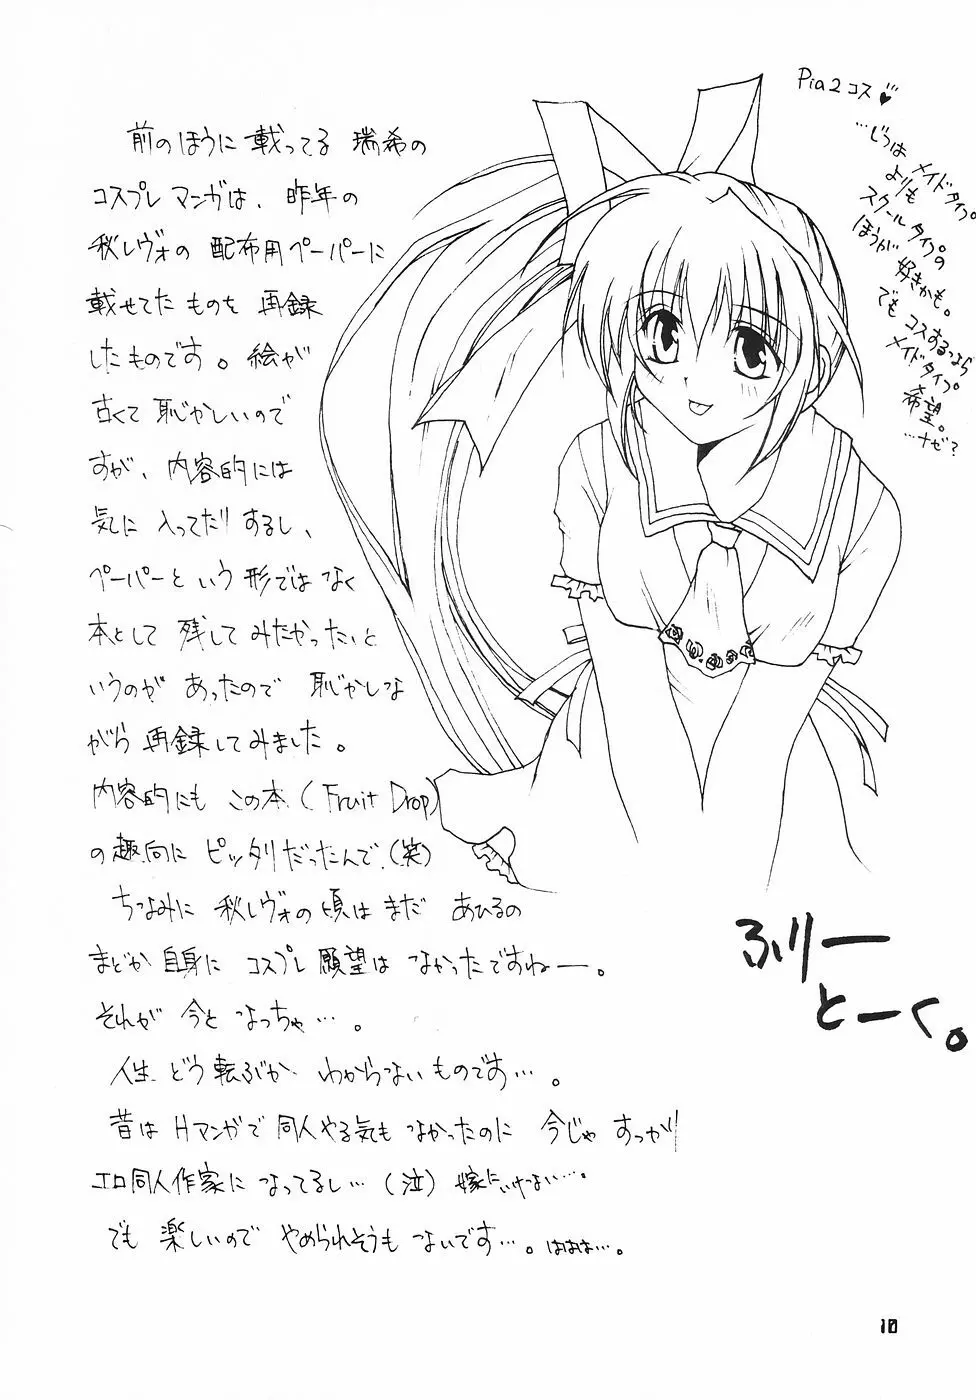 前のほうに載ってる 瑞希の
コスプレマンガは、昨年の
秋レヴォの配布用ペーパーに
載せてたものを再録
したものです。絵が
古くて恥かしいので
すが、内容的には
気に入ってたりするし、
ペーパーという形ではなく
本として残してみたかったと
いうのがあったので 恥かしな
がら再録してみました。
内容的にもこの本(Fruit Drop)
の趣向にピッタリだったんで(笑)
ちなみに秋レヴォの頃はまだあひるの
まどか自身にコスプレ願望はなかったですねー。
それが今となっちゃ…。
人生どう転ぶかわからないものです…。
昔はHマンガで同人やる気もなかったのに 今じゃすっかり
エロ同人作家になってるし…(泣)嫁にいけない…。
でも楽しいのでやめられそうもないです…。ははは…。
Pia2コス♥
…じつは
メイドタイプ
よりも
スクールタイプの
ほうが好きかも。
でもコスするなら
メイドタイプ
希望。
…ナゼ?
ふりー
とーく。
10